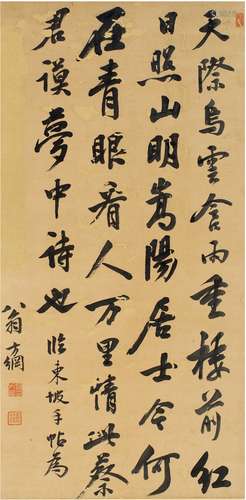 天際烏雲含雨重樓前紅
日照山明嵩陽居士今何
在青眼看人万里情此蔡
君謨夢中詩也臨東坡手帖為
翁方綱